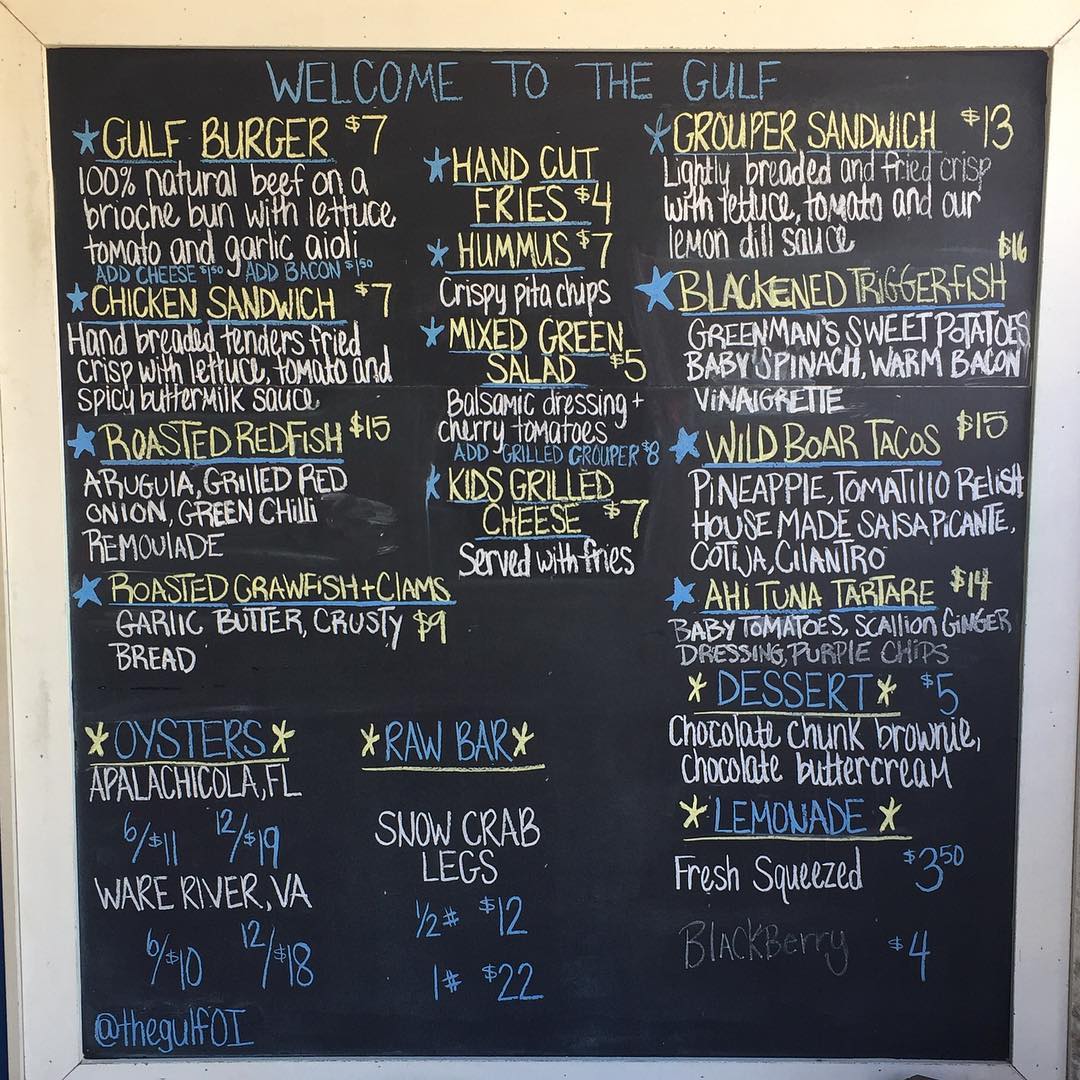 WELCOME TO THE GULF
GULF BURGER $7
100% natural beef on a
brioche bun with lettuce
tomato and garlic aioli
ADD CHEESE $1.50 ADD BACON $1.50
CHICKEN SANDWICH $7
Hand breaded tenders fried
crisp with lettuce, tomato and
spicy buttermilk sauce
ROASTED REDFISH $15
ARUGULA, GRILLED RED
ONION, GREEN CHILLI
REMOULADE
ROASTED CRAWFISH + CLAMS
GARLIC BUTTER, CRUSTY $9
BREAD
HAND CUT
FRIES $4
HUMMUS $7
Crispy pita chips
MIXED GREEN
SALAD $5
Balsamic dressing +
cherry tomatoes
ADD GRILLED GROUPER $8
KIDS GRILLED
CHEESE $7
Served with fries
GROUPER SANDWICH $13
Lightly breaded and fried crisp
with lettuce, tomato and our
lemon dill sauce
$16
BLACKENED TRIGGERFISH
GREENMAN'S SWEET POTATOES
BABY SPINACH, WARM BACON
VINAIGRETTE
WILD BOAR TACOS $15
PINEAPPLE, TOMATILLO RELISH
HOUSE MADE SALSA PICANTE,
COTIJA, CILANTRO
AHI TUNA TARTARE $14
BABY TOMATOES, SCALLION GINGER
DRESSING, PURPLE CHIPS
DESSERT $5
Chocolate chunk brownie,
chocolate buttercream
LEMONADE
Fresh Squeezed $3.50
BLACKBerry $4
OYSTERS
APALACHICOLA, FL
6/$11 12/$19
WARE RIVER, VA
6/$10 12/$18
RAW BAR
SNOW CRAB
LEGS
1/2# $12
1# $22
@thegulfOI